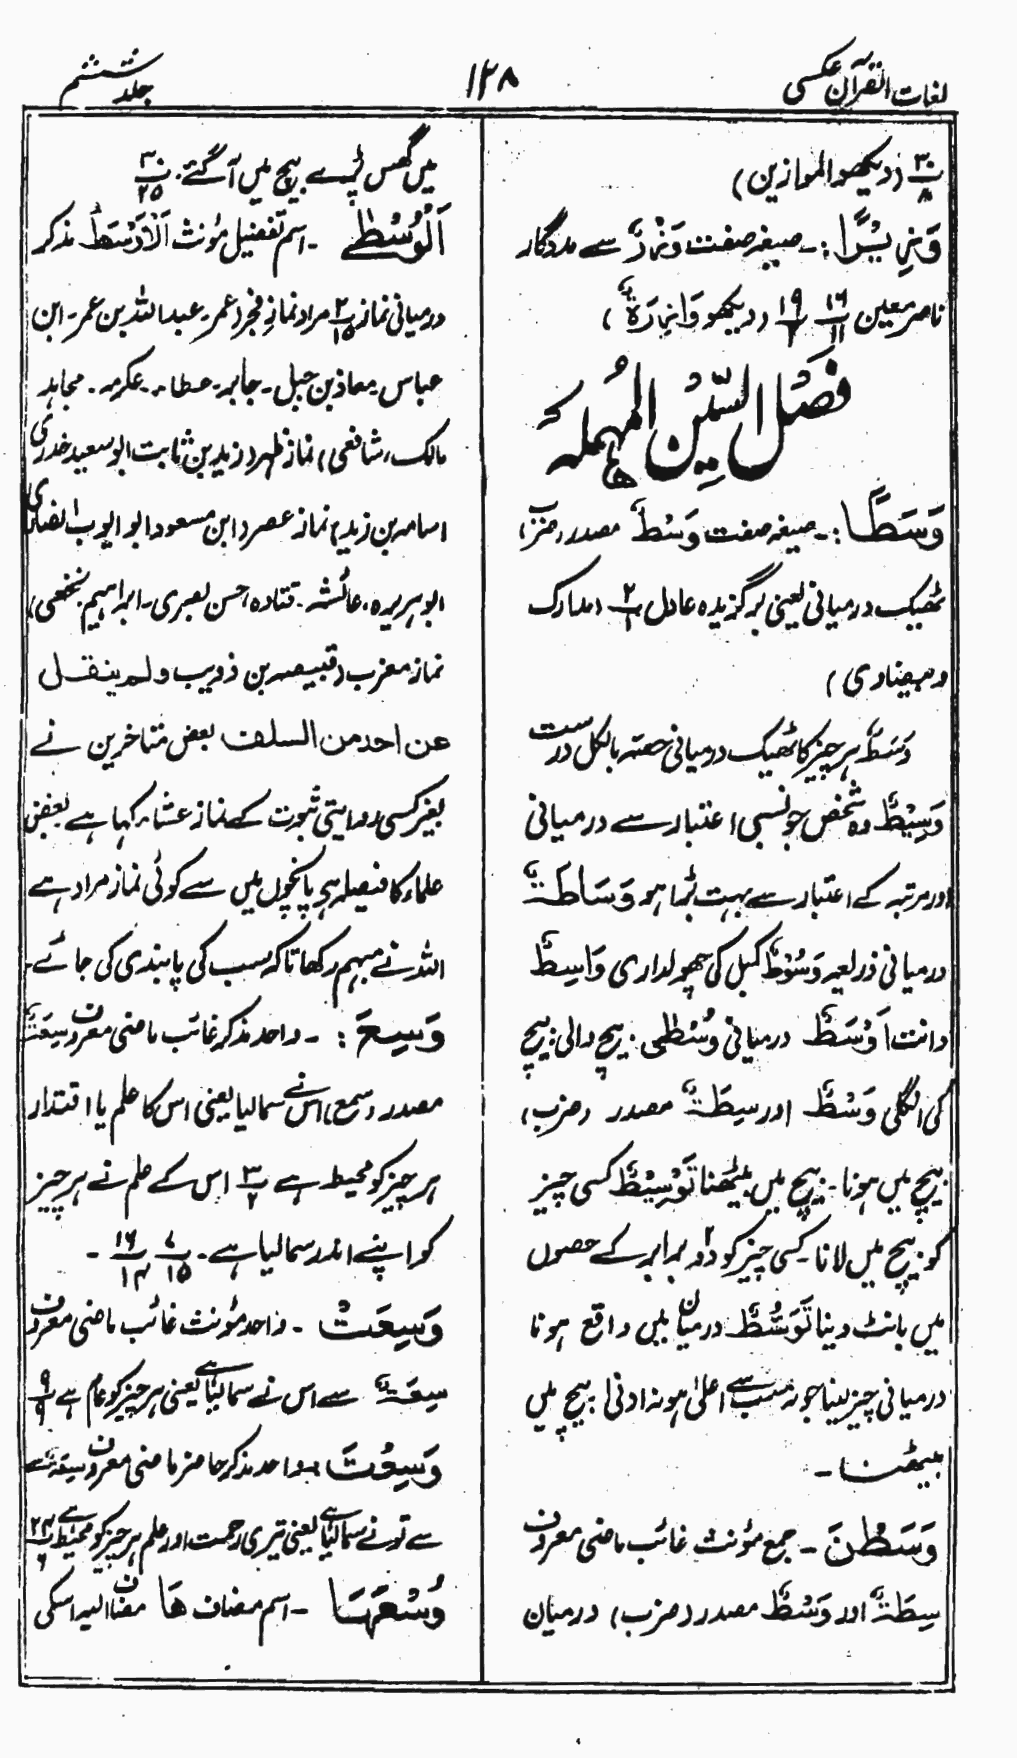 لغات القرآن عکسی
۱۲۸
جلد ششم
۳۰/۸ (دیکھو الموازین)
وَزِیْرًا :۔ صیغہ صفت وَزَرٌ سے مددگار
ناصر معین ۱۶/۱۱ ۱۹/۲ (دیکھو وَازِرَۃٌ)
فصل السین المہملہ
وَسَطًا :۔ صیغہ صفت وَسْطٌ مصدر (ضرب)
ٹھیک درمیانی یعنی برگزیدہ عادل ۲/۱ (مدارک
و بیضاوی)
وَسَطٌ ہر چیز کا ٹھیک درمیانی حصتہ بالکل درست
وَسِیْطٌ وہ شخص جو نسبی اعتبار سے درمیانی
اور مرتبہ کے اعتبار سے بہت بڑا ہو وَسَاطَۃٌ
درمیانی ذریعہ وَسُوْطٌ کمبل کی چھولداری وَاسِطٌ
دانت اَوْسَطٌ درمیانی وُسْطٰی بیچ والی بیچ
کی انگلی وَسْطٌ اور سِطَۃٌ مصدر (ضرب)
بیچ میں ہونا۔ بیچ میں بیٹھنا تَوْسِیْطٌ کسی چیز
کو بیچ میں لانا۔ کسی چیز کو دو برابر کے حصوں
میں بانٹ دینا تَوَسُّطٌ درمیان میں واقع ہونا
درمیانی چیز لینا جو نہ سب سے اعلیٰ ہو نہ ادنیٰ بیچ میں
بیٹھنا۔
وَسَطْنَ ۔ جمع مؤنث غائب ماضی معروف
سِطَۃٌ اور وَسْطٌ مصدر (ضرب) درمیان
میں گھس پڑے بیچ میں آ گئے۔ ۳۰/۲۵
اَلْوُسْطٰے ۔ اسم تفضیل مؤنث اَلْاَوْسَطُ مذکر
درمیانی نماز ۲/۱۵ مراد نماز فجر (عمر۔ عبداللہ بن عمر۔ ابن
عباس۔ معاذ بن جبل۔ جابر۔ عطاء۔ عکرمہ۔ مجاہد
مالک، شافعی) نماز ظہر (زید بن ثابت ابو سعید خدری
اسامہ بن زید) نماز عصر (ابن مسعود ابو ایوب انصاری
ابو ہریرہ، عائشہ۔ قتادہ، حسن بصری۔ ابراہیم نخعی)
نماز مغرب (قبیصہ بن ذویب ولم ینقل
عن احد من السلف بعض متاخرین نے
بغیر کسی روایتی ثبوت کے نماز عشاء کہا ہے بعض
علماء کا فیصلہ ہے پانچوں میں سے کوئی نماز مراد ہے
اللہ نے مبہم رکھا تاکہ سب کی پابندی کی جائے۔
وَسِعَ :۔ واحد مذکر غائب ماضی معروف سِعَۃٌ
مصدر (سمع) اس نے سمالیا یعنی اس کا علم یا اقتدار
ہر چیز کو محیط ہے ۳/۲ اس کے علم نے ہر چیز
کو اپنے اندر سمالیا ہے۔ ۷/۱۵ ۱۶/۱۴ ۔
وَسِعَتْ ۔ واحد مؤنث غائب ماضی معروف
سِعَۃٌ سے اس نے سمالیا ہے یعنی ہر چیز کو عام ہے ۹/۹
وَسِعْتَ :۔ واحد مذکر حاضر ماضی معروف سِعَۃٌ
سے تو نے سمالیا ہے یعنی تیری رحمت اور علم ہر چیز کو محیط ہے ۲۴/۶
وُسْعَہَا ۔ اسم مضاف ھَا مضاف الیہ اسکی